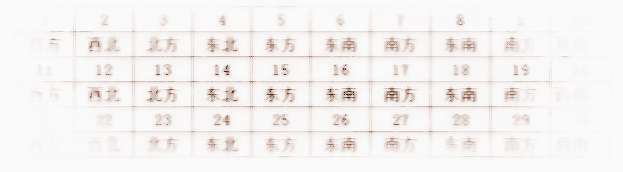 2 3 4 5 6 7 8
西北 北方 东北 东方 东南 南方 东南 南方
12 13 14 15 16 17 18 19
西北 北方 东北 东方 东南 南方 东南 南方
22 23 24 25 26 27 28 29
西北 北方 东北 东方 东南 南方 东南 南方